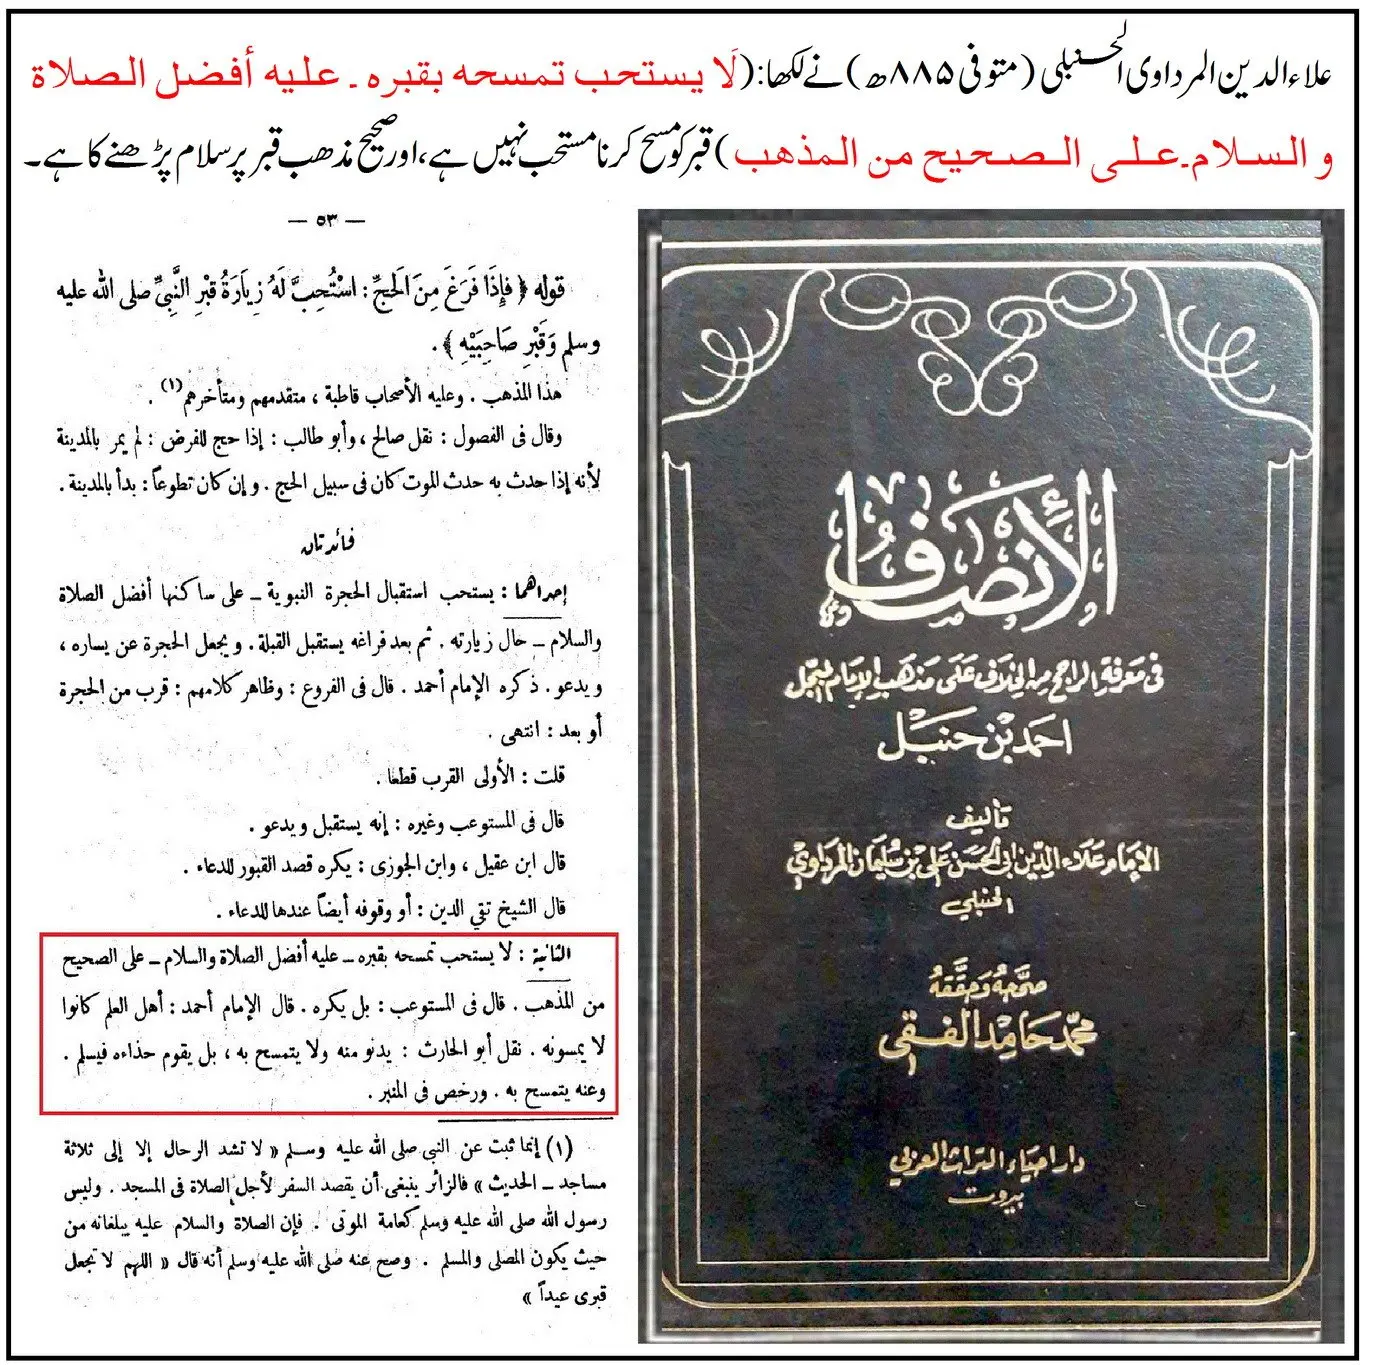 علاءالدین المرداوی الحنبلی (متوفی ۸۸۵ھ) نے لکھا: (لَا يستحب تمسحه بقبره ـ عليه أفضل الصلاة
و السلام ـ على الصحيح من المذهب) قبر کو مسح کرنا مستحب نہیں ہے، اور صحیح مذھب قبر پر سلام پڑھنے کا ہے۔
— ٥٣ —
قوله ﴿ فَإِذَا فَرَغَ مِنَ الْحَجِّ : اسْتُحِبَّ لَهُ زِيَارَةُ قَبْرِ النَّبِيِّ صلى الله عليه
وسلم وَقَبْرِ صَاحِبَيْهِ ﴾ .
هذا المذهب . وعليه الأصحاب قاطبة ، متقدمهم ومتأخرهم (١) .
وقال فى الفصول : نقل صالح ، وأبو طالب : إذا حج للفرض : لم يمر بالمدينة
لأنه إذا حدث به حدث الموت كان فى سبيل الحج . وإن كان تطوعاً : بدأ بالمدينة .
فائدتان
إحداهما : يستحب استقبال الحجرة النبوية ــ على ساكنها أفضل الصلاة
والسلام ــ حال زيارته . ثم بعد فراغه يستقبل القبلة . ويجعل الحجرة عن يساره ،
ويدعو . ذكره الإمام أحمد . قال فى الفروع : وظاهر كلامهم : قرب من الحجرة
أو بعد : انتهى .
قلت : الأولى القرب قطعا .
قال فى المستوعب وغيره : إنه يستقبل ويدعو .
قال ابن عقيل ، وابن الجوزى : يكره قصد القبور للدعاء .
قال الشيخ تقي الدين : أو وقوفه أيضاً عندها للدعاء .
الثانية : لا يستحب تمسحه بقبره ــ عليه أفضل الصلاة والسلام ــ على الصحيح
من المذهب . قال فى المستوعب : بل يكره . قال الإمام أحمد : أهل العلم كانوا
لا يمسونه . نقل أبو الحارث : يدنو منه ولا يتمسح به ، بل يقوم حذاءه فيسلم .
وعنه يتمسح به . ورخص فى المنبر .
(١) إنما ثبت عن النبى صلى الله عليه وسلم « لا تشد الرحال إلا إلى ثلاثة
مساجد ــ الحديث » فالزائر ينبغى أن يقصد السفر لأجل الصلاة فى المسجد . وليس
رسول الله صلى الله عليه وسلم كعامة الموتى . فإن الصلاة والسلام عليه يبلغانه من
حيث يكون المصلى والمسلم . وصح عنه صلى الله عليه وسلم أنه قال « اللهم لا تجعل
قبرى عيداً »
الإنصاف
فى معرفة الراجح من الخلاف على مذهب الإمام المبجل
احمد بن حنبل
تأليف
الإمام علاء الدين ابى الحسن على بن سليمان المرداوي
الحنبلي
صححه وحققه
محمد حامد الفقى
دار احياء التراث العربي
بيروت